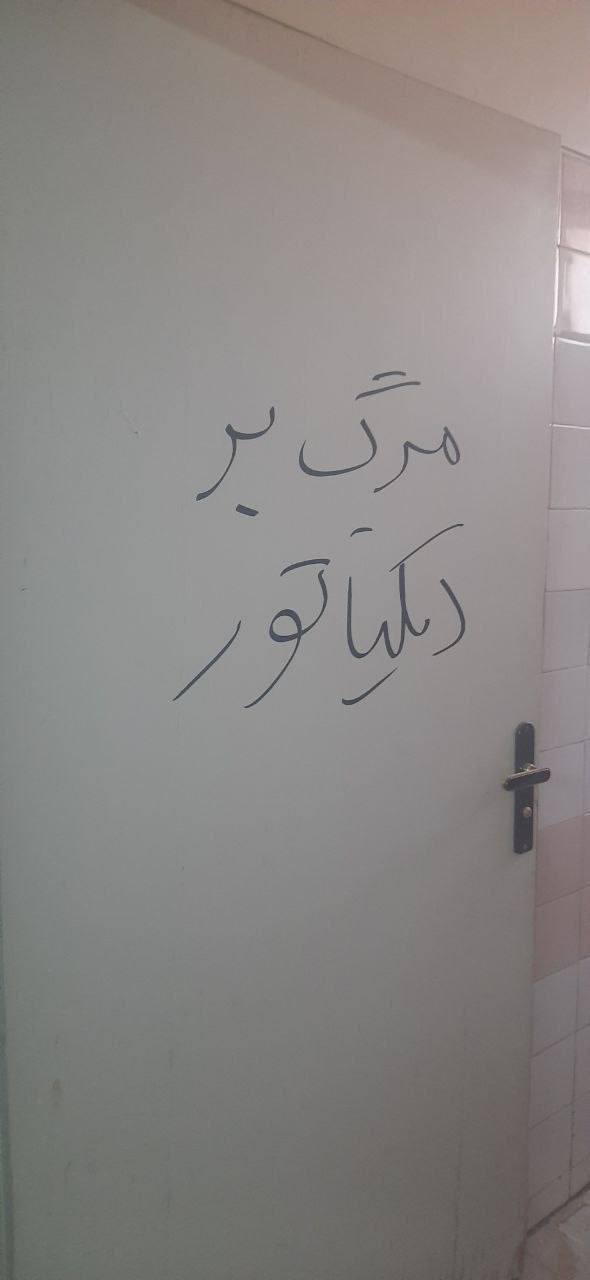 مرگ بر
دیکتاتور